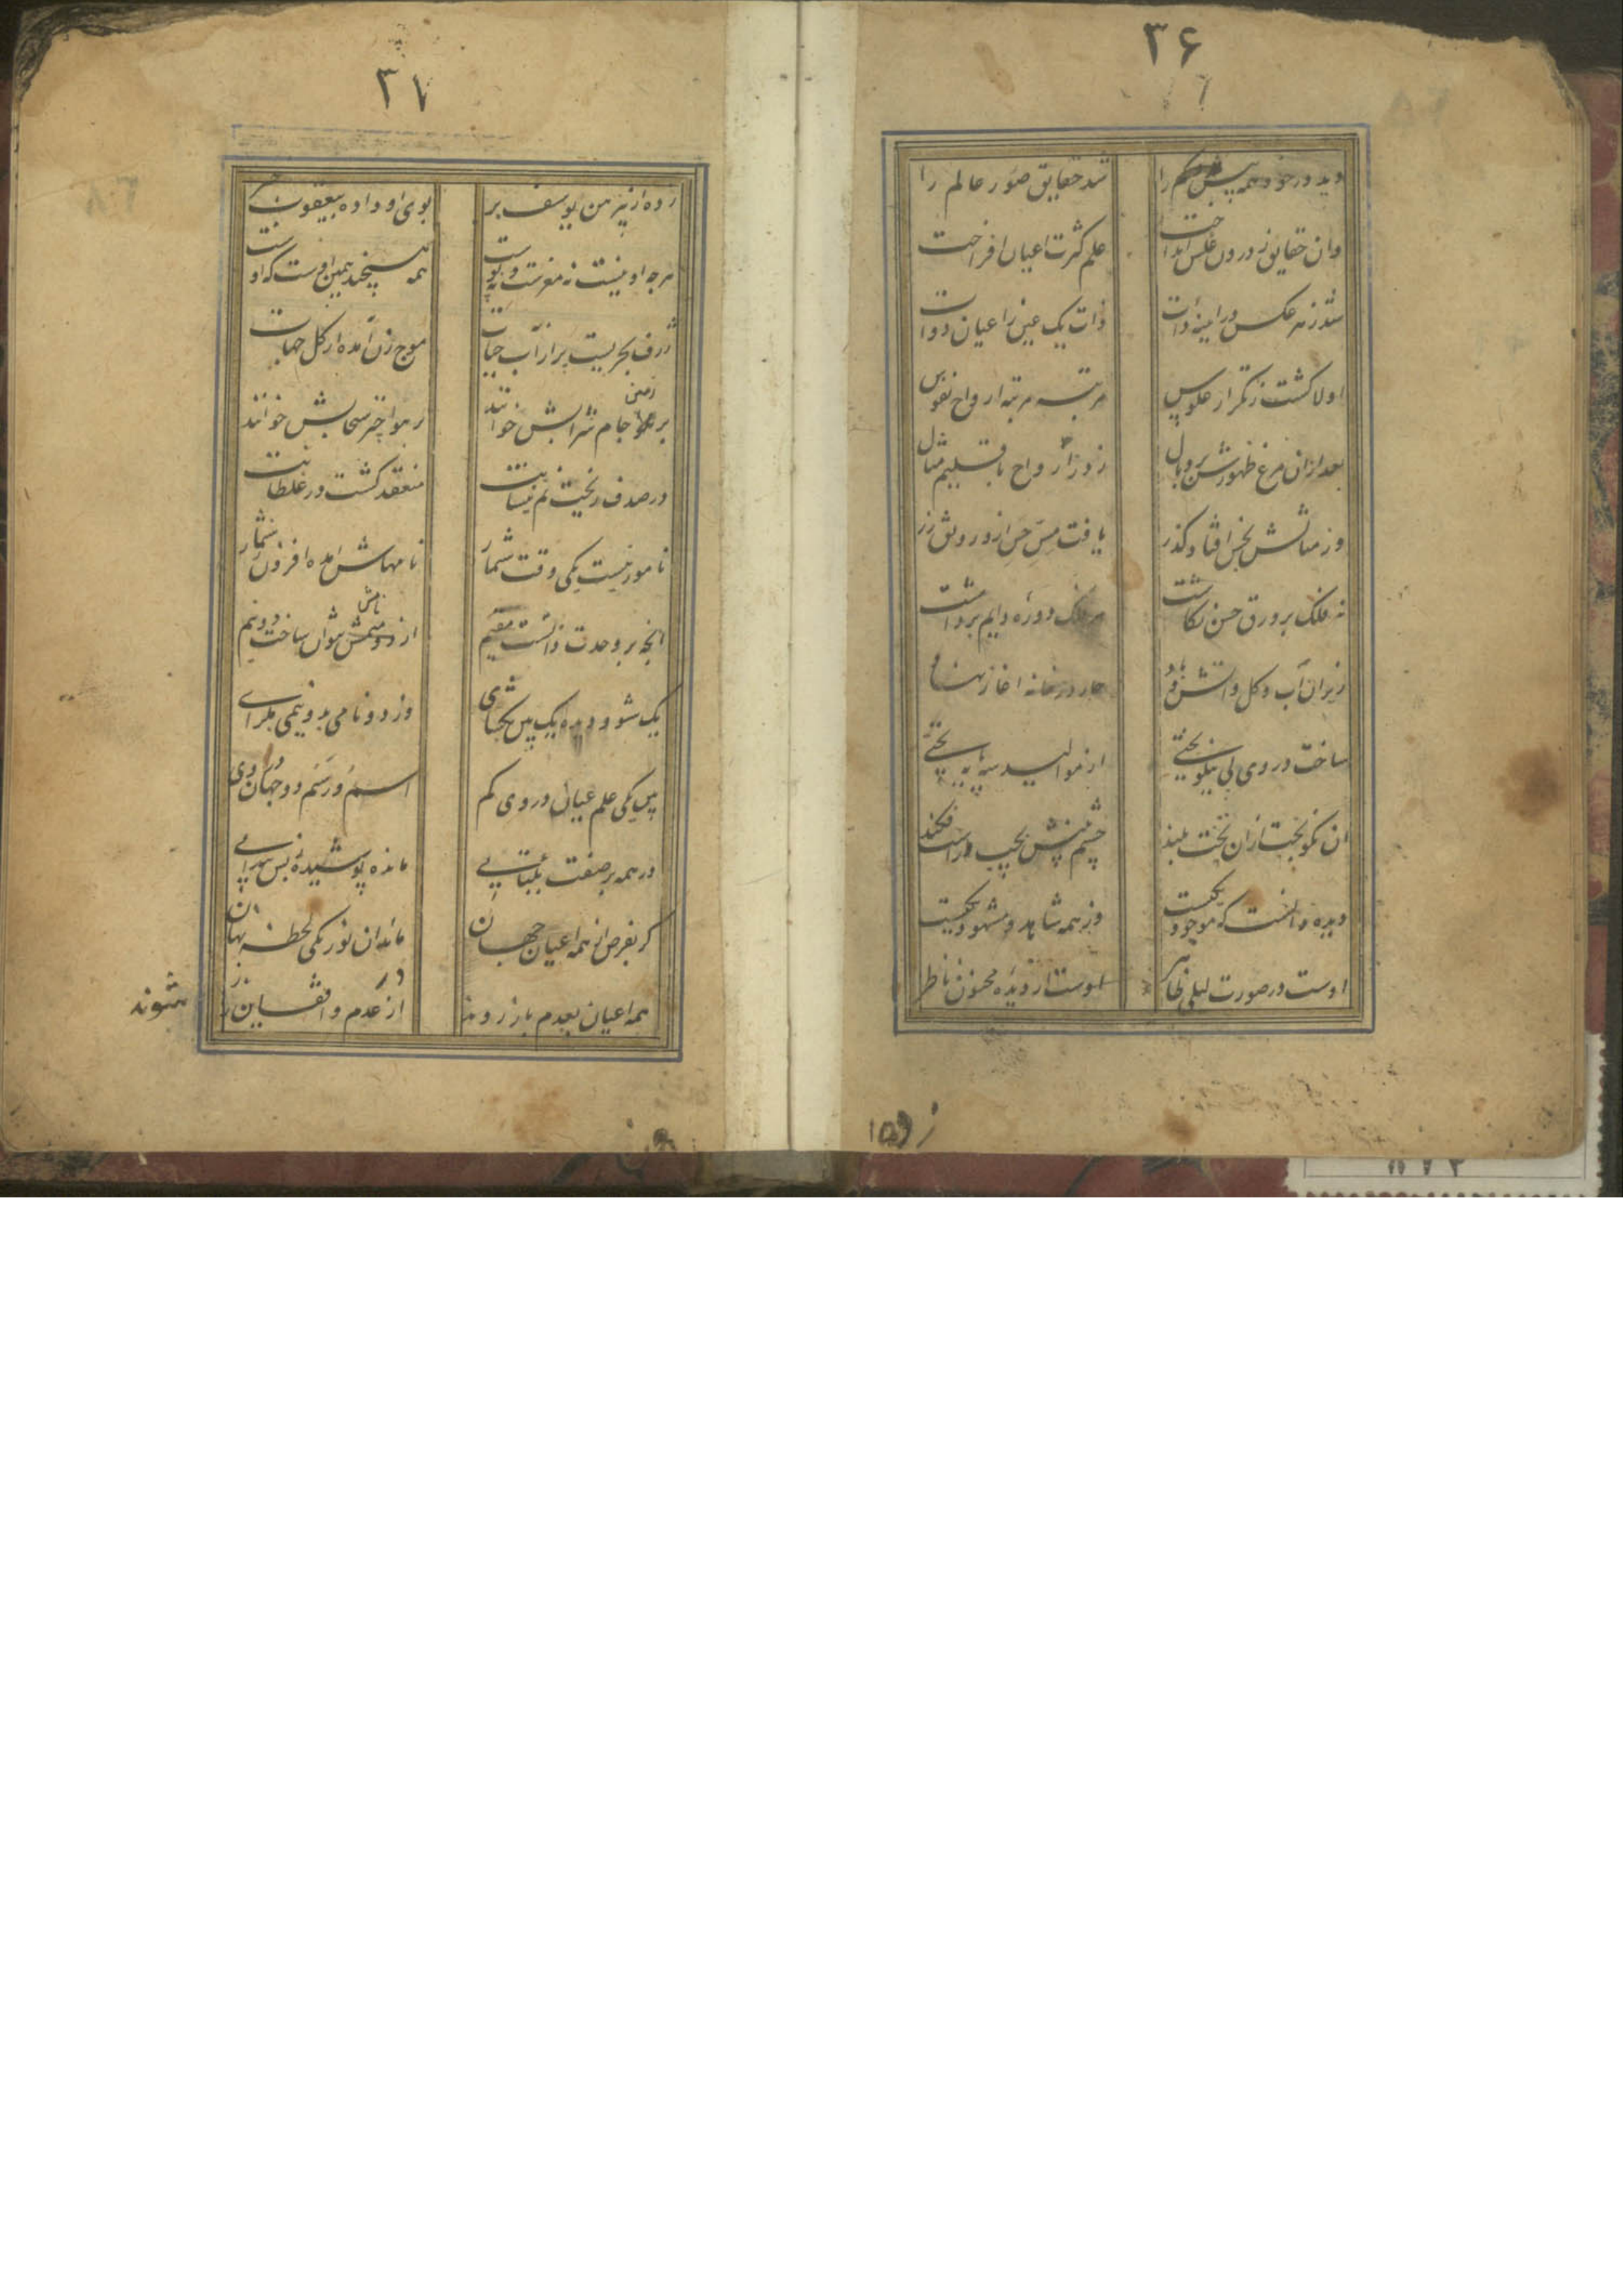 ۳۶
دید در خود همه بیش و کم را
شد حقایق صور عالم را
وان حقایق ز درون عکس انداخت
علم کثرت اعیان افراخت
شد ز هر عکس در آیینه ذات
ذات یک عین ز اعیان ذوات
اولا کشت ز تکرار عکوس
مرتبه مرتبه ارواح نفوس
بعد ازان مرغ ظهورش پر و بال
زد ز ارواح باقلیم مثال
وز مثالش بحس افتاد کذر
یافت مس حس ازو رونق زر
نه فلک بر ورق حسن نکاشت
هر فلک دوره دایم برداشت
زیر ان آب و کل و آتش و
چار در خانه اغاز نهاد
ساخت در وی پی نیکو بختی
از موالید سه پایه تختی
ان نکو بخت ازان تخت بلند
چشم بینش بچپ و راست فکند
دیده دانست که موجود یکیست
وز همه شاهد و مشهود یکیست
اوست در صورت لیلی ظاهر
اوست از دیده مجنون ناظر
۳۷
زده از پیرهن یوسف بر
بوی او داده بیعقوب خبر
هرچه او نیست نه مغزست و نه پوست
همه هیچند همین اوست که اوست
ژرف بحریست پر از آب حیات
موج زن آمده از کل جهات
بر زمین جام شرابش خوانند
بر هوا چتر سحابش خوانند
در صدف ریخت نم نیسانیت
منعقد کشت در غلطانیت
نامور نیست یکی وقت شمار
نامهاش امده افزون ز شمار
انچه بر وحدت ذاتست مقیم
از دو نامش نتوان ساخت دو نیم
یک شو و دیده یک بین بکشای
وز دو نامی بدو نیمی مکرای
بین یکی علم عیان در وی کم
اسم و رسم دو جهان در وی
در همه بر صفت یکتایی
مانده پوشیده ز بس پیدایی
کر بفرض از همه اعیان جهان
ماند ان نور یکی لحظه نهان
همه اعیان بعدم باز روند
در از عدم واقف این راز
شوند